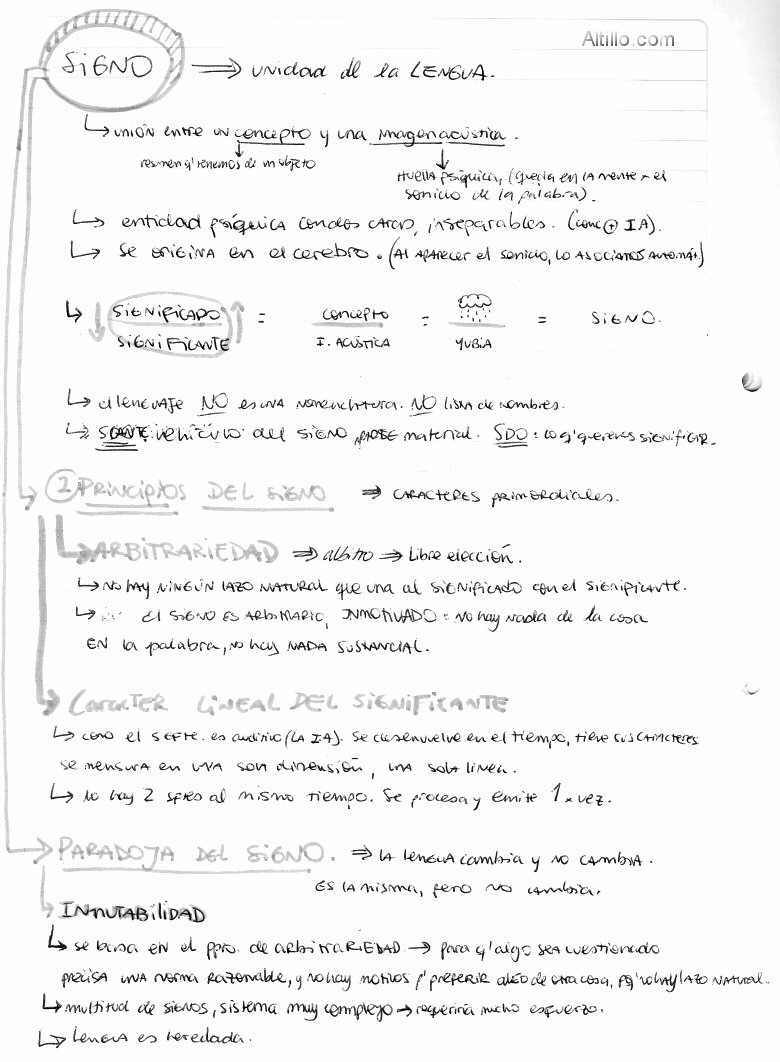 Altillo.com
SIGNO ⟹ unidad de la LENGUA.
↳ unión entre un concepto y una imagen acústica.
resumen q' tenemos de un objeto
Huella psíquica, (queda en la mente el
sonido de la palabra).
↳ entidad psíquica con dos caras, inseparables. (conc ⊕ IA).
↳ Se origina en el cerebro. (Al aparecer el sonido, lo asociamos automát)
↳ SIGNIFICADO = concepto = = SIGNO.
SIGNIFICANTE I. ACÚSTICA YUBIA
↳ el lenguaje NO es una nomenclatura. NO lista de nombres.
↳ SCANTE: vehículo del signo, parte material. SDO: lo q' quereres significar.
② PRINCIPIOS DEL SIGNO ⟹ CARACTERES PRIMORDIALES.
↳ ARBITRARIEDAD ⟹ albitro ⟹ Libre elección.
↳ No hay NINGÚN LAZO NATURAL que una al SIGNIFICADO con el SIGNIFICANTE.
↳ el SIGNO ES ARBITRARIO, INMOTIVADO: No hay nada de la cosa
EN la palabra, no hay NADA SUSTANCIAL.
CARÁCTER LINEAL DEL SIGNIFICANTE
↳ como el SGFTE. es auditivo (LA IA). Se desenvuelve en el tiempo, tiene sus caracteres
se mensura en una sola dimensión, una sola linea.
↳ No hay 2 sgtes al mismo tiempo. Se procesa y emite 1 x vez.
PARADOJA DEL SIGNO. ⟹ LA lengua cambia y no cambia.
ES LA misma, pero no cambia.
INMUTABILIDAD
↳ se basa EN el ppio. de ARBITRARIEDAD → para q' algo sea cuestionado
precisa una norma razonable, y no hay motivos p' preferir algo de otra cosa, pq' no hay LAZO NATURAL.
↳ multitud de signos, sistema muy complejo → requeriría mucho esfuerzo.
↳ Lengua es heredada.